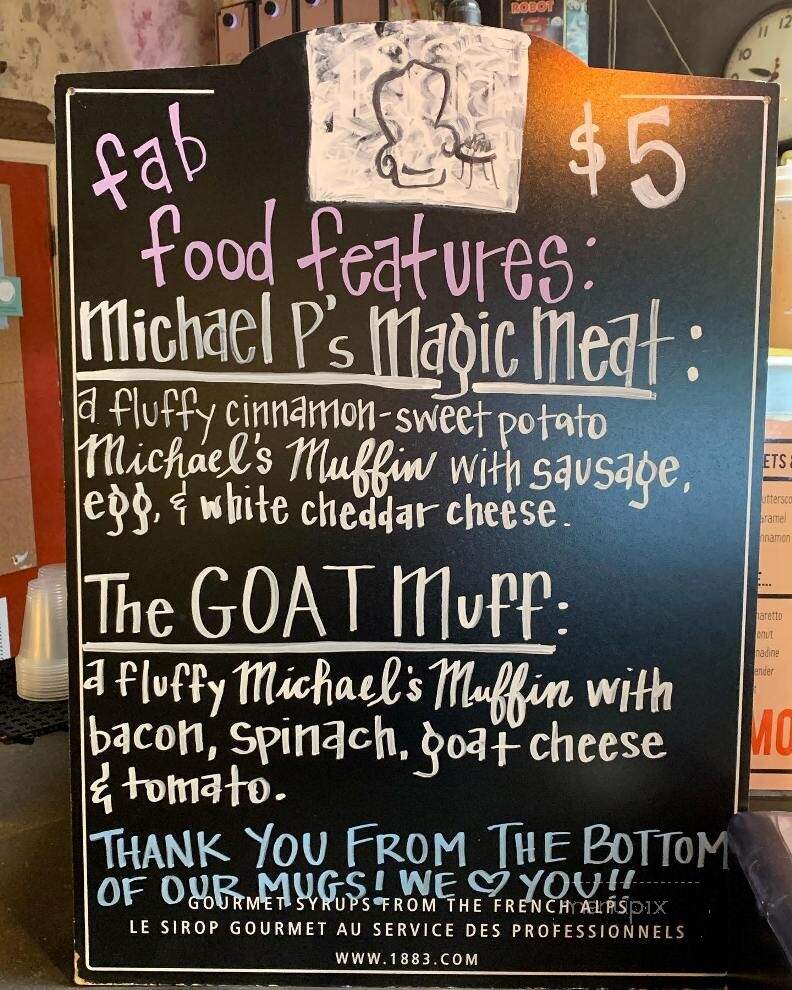 ROBOT
10 11 12
fab $5
food features:
Michael P's Magic Meat:
a fluffy cinnamon-sweet potato
Michael's Muffin with sausage,
egg, & white cheddar cheese.
The GOAT Muff:
a fluffy Michael's Muffin with
bacon, spinach, goat cheese
& tomato.
THANK YOU FROM THE BOTTOM
OF OUR MUGS! WE ♡ YOU!!
GOURMET SYRUPS FROM THE FRENCH ALPS
LE SIROP GOURMET AU SERVICE DES PROFESSIONNELS
WWW.1883.COM
menspix
ETS &
uttersco
aramel
nnamon
E...
aretto
onut
nadine
ender
MO